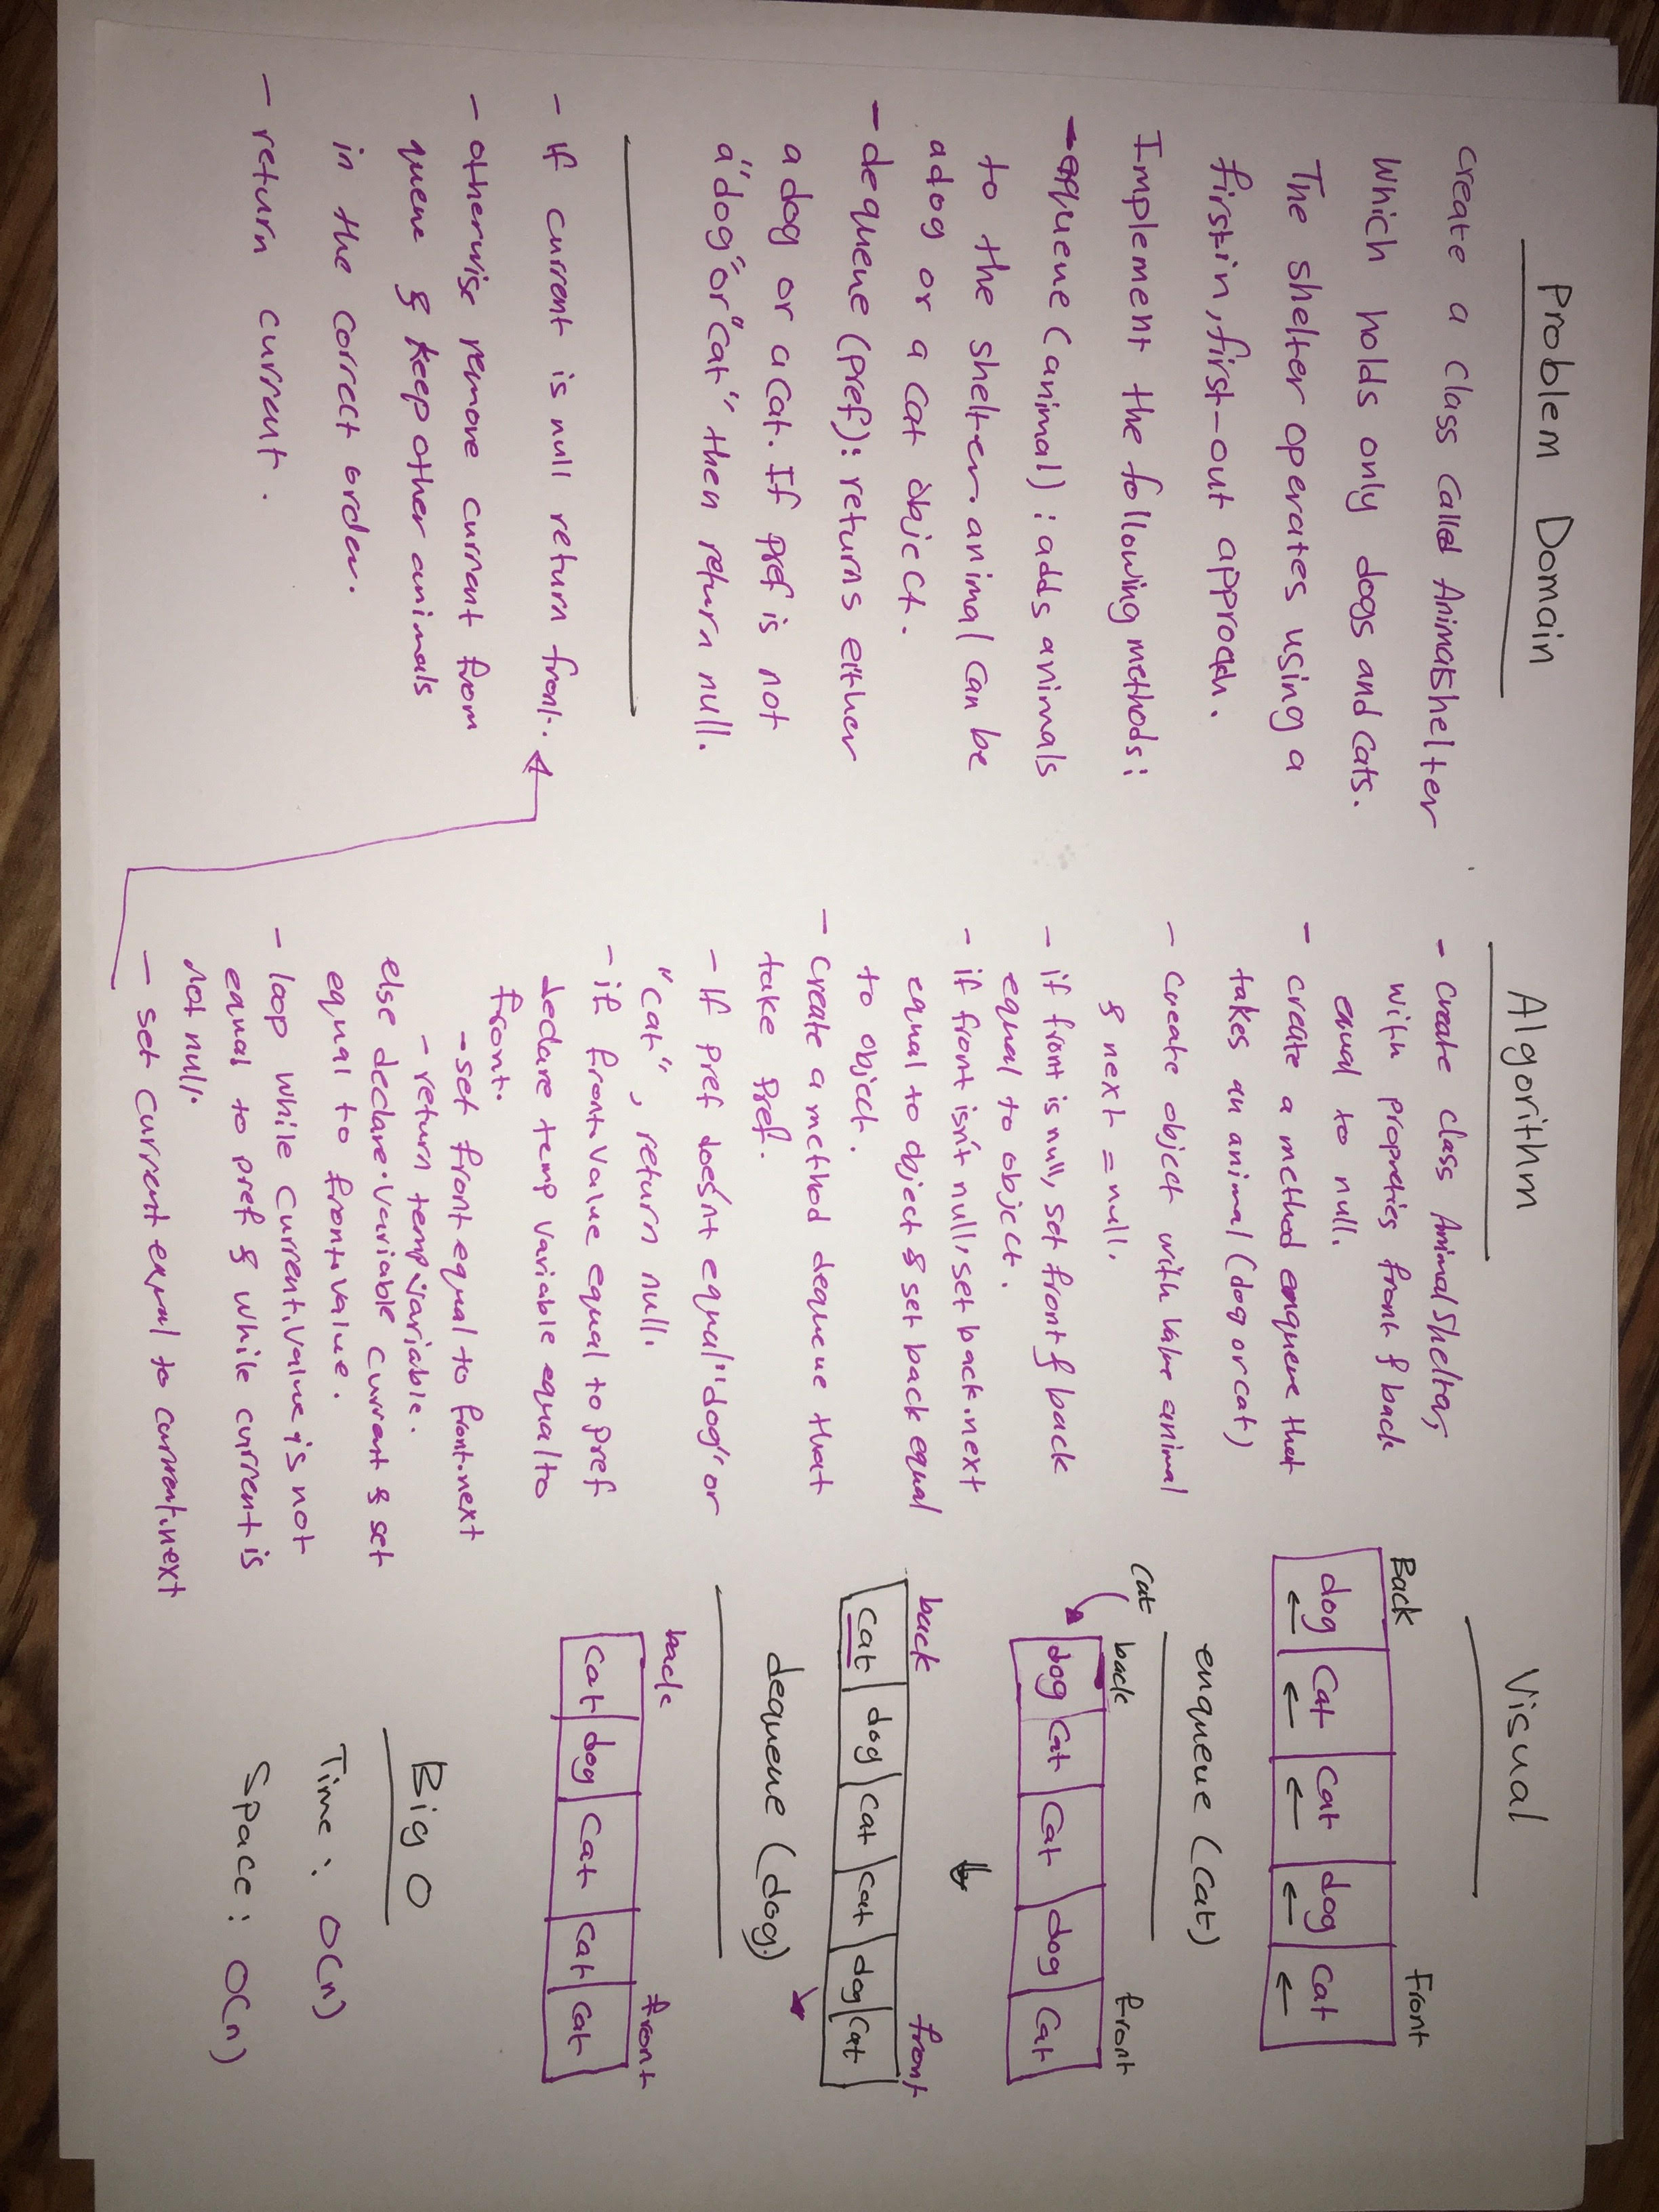 Problem Domain
create a class called AnimalShelter
which holds only dogs and cats.
The shelter operates using a
first-in, first-out approach.
Implement the following methods:
- enqueue (animal) : adds animals
to the shelter. animal can be
a dog or a cat object.
- dequeue (pref): returns either
a dog or a cat. If pref is not
a "dog" or "cat" then return null.
- if current is null return front.
- otherwise remove current from
queue & keep other animals
in the correct order.
- return current.
Algorithm
- create class AnimalShelter,
with propreties front & back
equal to null.
- create a method enqueue that
takes an animal (dog or cat)
- create object with value animal
& next = null.
- if front is null, set front & back
equal to object.
- if front isn't null, set back.next
equal to object & set back equal
to object.
- create a method dequeue that
take pref.
- If pref does'nt equal "dog" or
"cat", return null.
- if front.value equal to pref
declare temp variable equal to
front.
- set front equal to front.next
- return temp variable.
else declare variable current & set
equal to front value.
- loop while current.value is not
equal to pref & while current is
not null.
- set current equal to current.next
Visual
Back Front
dog cat cat dog cat
← ← ← ← ←
enqueue (cat)
cat back front
dog cat cat dog cat
back front
cat dog cat cat dog cat
dequeue (dog)
back front
cat dog cat cat cat
Big O
Time : O(n)
Space : O(n)